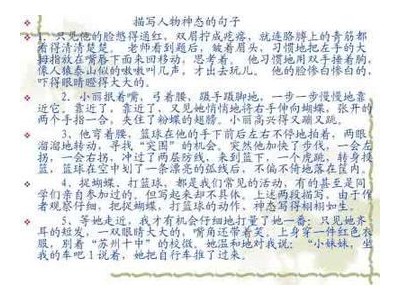 描写人物神态的句子
1、只见他的脸憋得通红，双眉拧成疙瘩，就连胳膊上的青筋都
看得清清楚楚。 老师看到题后，皱着眉头，习惯地把左手的大
拇指放在嘴唇下面来回移动，思考着。 他习惯地用双手接着胸，
像人猿泰山似的嗷嗷叫几声，才出去玩儿。 他的脸惨白惨白的，
吓得眼睛瞪得大大的。
2、小丽抿着嘴，弓着腰，蹑手蹑脚地，一步一步慢慢地靠
近它。靠近了，靠近了，又见她悄悄地将右手伸向蝴蝶，张开的
两个手指一合，夹住了粉蝶的翅膀。小丽高兴得又蹦又跳。
3、他弯着腰，篮球在他的手下前后左右不停地拍着，两眼
溜溜地转动，寻找“突围”的机会。突然他加快了步伐，一会左
拐，一会右拐，冲过了两层防线，来到篮下，一个虎跳，转身投
篮，篮球在空中划了一条漂亮的弧线后，不偏不倚地落在筐内。
4、捉蝴蝶、打篮球，都是我们常见的活动，有的甚至是同
学们亲自参加过的。但写起来却不具体。上述两段描写，由于作
者观察仔细，把捉蝴蝶、打篮球的动作、神态写得栩栩如生。
5、等她走近，我才有机会仔细地打量了她一番：只见她齐
耳的短发，一双眼睛大大的，嘴角还带着笑。上身穿一件红色衣
服，别着“苏州十中”的校徽。她温和地对我说：“小妹妹，坐
我的车吧！说着，她把自行车推了过来。